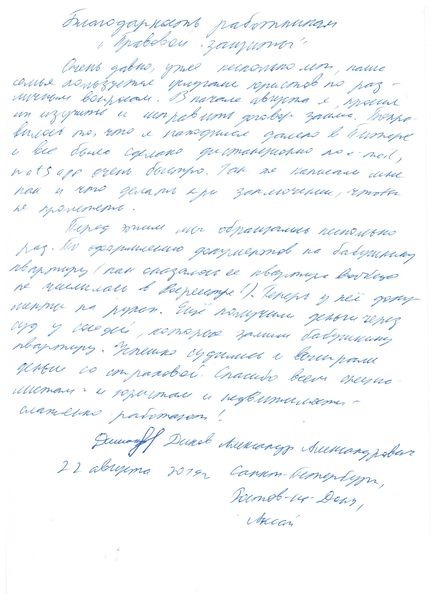 Благодарность работникам
"Правовой защиты"
Очень давно, уже несколько лет, наша
семья пользуется услугами юристов по раз-
личным вопросам. В начале августа я просил
их изучить и исправить договор займа. Понра-
вилось то, что я находился далеко в Питере
и все было сделано дистанционно по e-mail,
watsapp очень быстро. Так же написали мне
как и что делать при заключении, чтобы
не пролететь.
Перед этим мы обращались несколько
раз. По оформлению документов на бабушкину
квартиру (как оказалось ее квартира вообще
не числилась в Росреестре!). Теперь у неё доку-
менты на руках. Ещё получили деньги через
суд у соседей, которые залили бабушкину
квартиру. Успешно судились и выиграли
деньги со страховой. Спасибо всем специа-
листам - и юристам и недвижимости -
слаженно работают!
Диков Александр Александрович
22 августа 2019г Санкт-Петербург,
Ростов-на-Дону,
Аксай